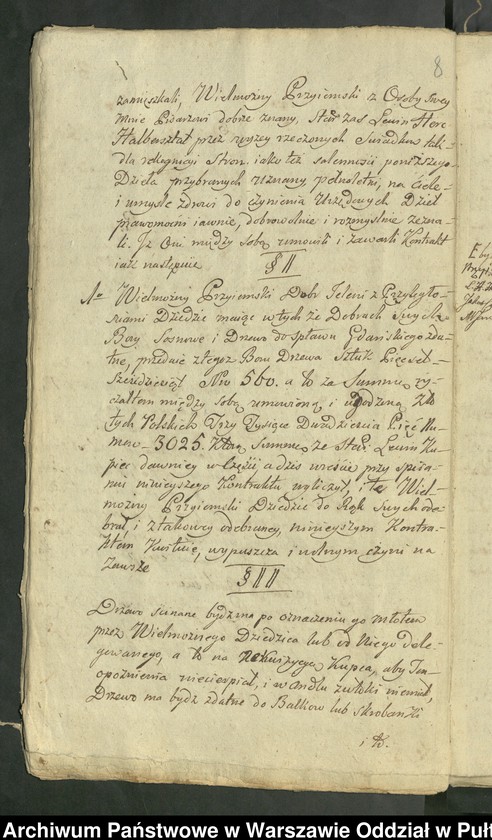 8
zamieszkali, Wielmożny Przyiemski z Osoby swey
mnie Pisarzowi dobrze znany, Star zas Lewin Herc
Halbersztat przez wyzey rzeczonych Swiadkow tak
dla relegnicyi Stron, iako też solemności poniższego
Dzieła przybranych uznany, pełnoletni, na ciele
i umyśle zdrowi do czynienia Urzędowych Dzieł
prawomocni iawnie, dobrowolnie i rozmyślnie zezna-
li. Iż Oni między sobą umowili i zawarli Kontrakt
iak następuie
§ II
1mo Wielmożny Przyiemski Dobr Jeleni z Przyległo-
sciami Dziedzic maiąc w tych że Dobrach swych
Bory Sosnowe i Drzewo do spławu Gdańskiego zda-
tne, przedaie z tegoż Boru Drzewa Sztuk Pięćset
Sześćdziesiąt Nro 560. a to za Summę ry-
czałtem między sobą umowioną i ugodzoną Zło
tych Polskich Trzy Tysiące Dwadzieścia Pięć Nu-
mero 3025. Którą Summę że Star: Lewin Ku-
piec dawniey w Części, a dziś reszte przy spisa-
niu ninieyszego Kontraktu wyliczył, i tę Wiel-
możny Przyiemski Dziedzic do Rąk swych ode
brał i z takowey odebraney, ninieyszym Kontra-
ktem Kwituie, wypuszcza i wolnym czyni na
Zawsze
§ III
Drzewo scinane bydź ma po oznaczeniu go młotem
przez Wielmożnego Dziedzica lub od Niego dele-
gowanego, a to na Kupca, aby Ten
opoźnienia niecierpiał, i w Andlu zwłoki niemiał,
Drzewo ma bydź zdatne do Balkow lub skrobanki
i t.